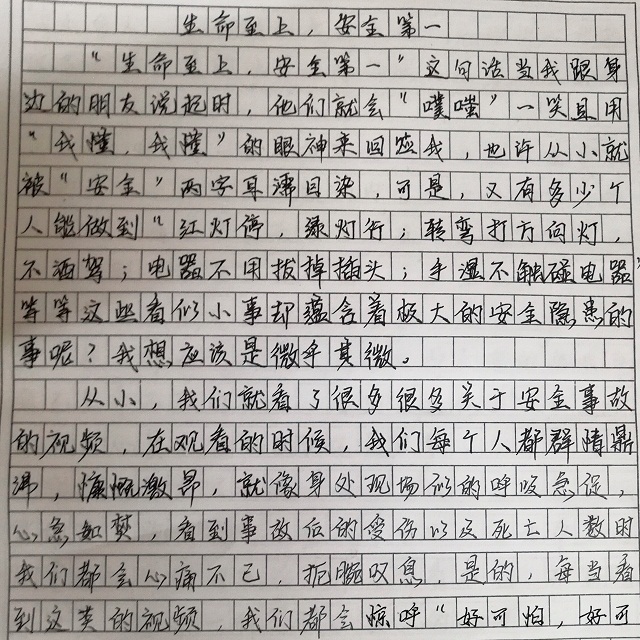 生命至上，安全第一
“生命至上，安全第一”这句话当我跟身
边的朋友说起时，他们就会“噗嗤”一笑且用
“我懂，我懂”的眼神来回应我，也许从小就
被“安全”两字耳濡目染，可是，又有多少个
人能做到“红灯停，绿灯行；转弯打方向灯，
不酒驾；电器不用拔掉插头；手湿不触碰电器”
等等这些看似小事却蕴含着极大的安全隐患的
事呢？我想应该是微乎其微。
从小，我们就看了很多很多关于安全事故
的视频，在观看的时候，我们每个人都群情鼎
沸，慷慨激昂，就像身处现场似的呼吸急促，
心急如焚，看到事故后的受伤以及死亡人数时
我们都会心痛不已，扼腕叹息，是的，每当看
到这类的视频，我们都会惊呼“好可怕，好可